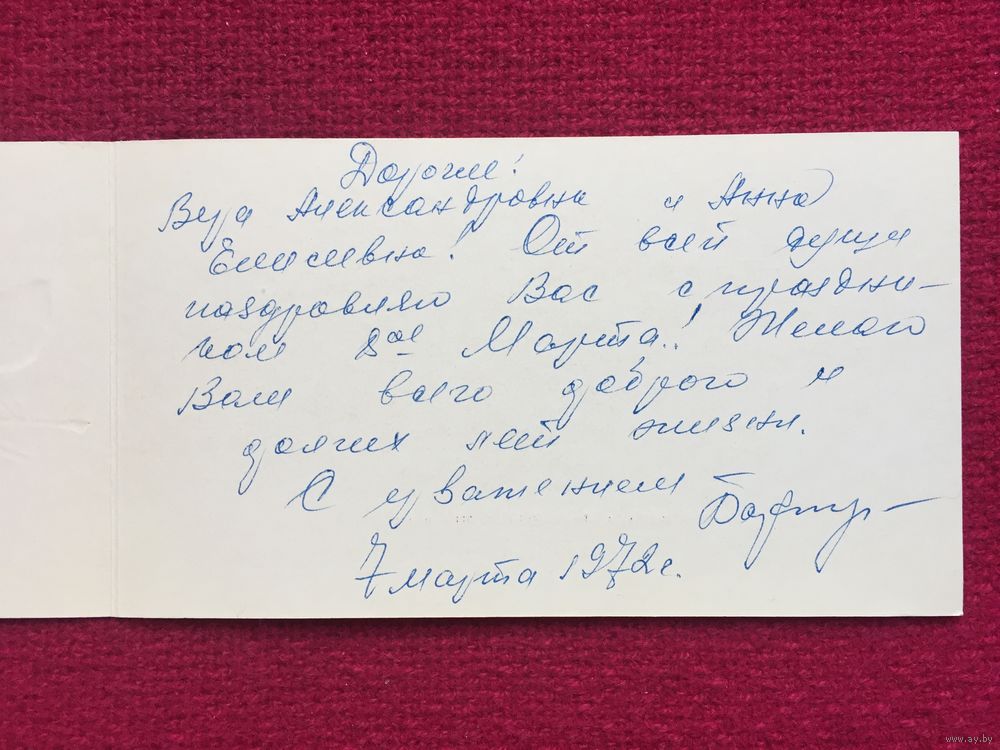 Дорогие!
Вера Александровна и Анна
Елисеевна! От всей души
поздравляю Вас с праздни-
ком 8ое Марта! Желаю
Вам всего доброго и
долгих лет жизни.
С уважением
7 марта 1972 г.
www.ay.by